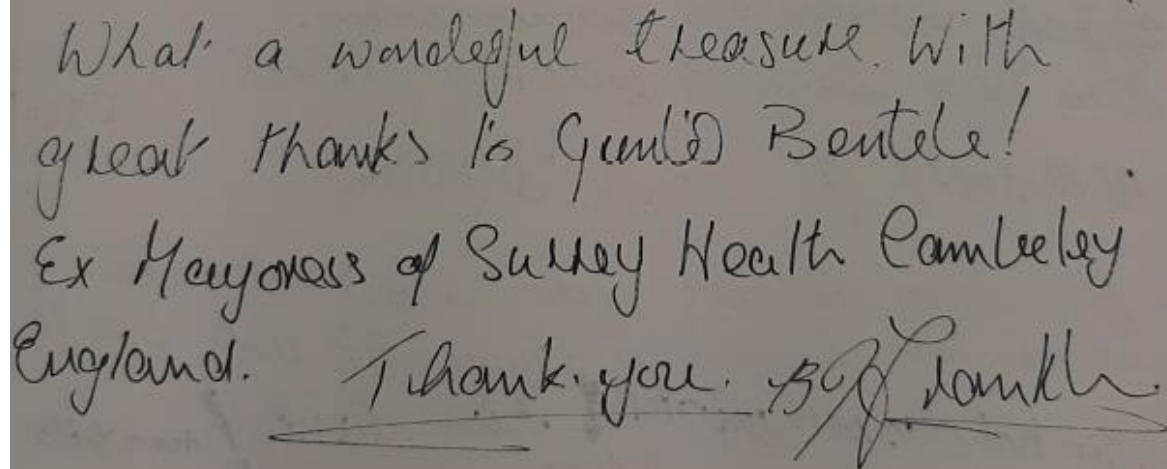 What a wonderful treasure. With
great thanks to Bentele!
Ex Mayoress of Surrey Heath Camberley
England. Thank you.